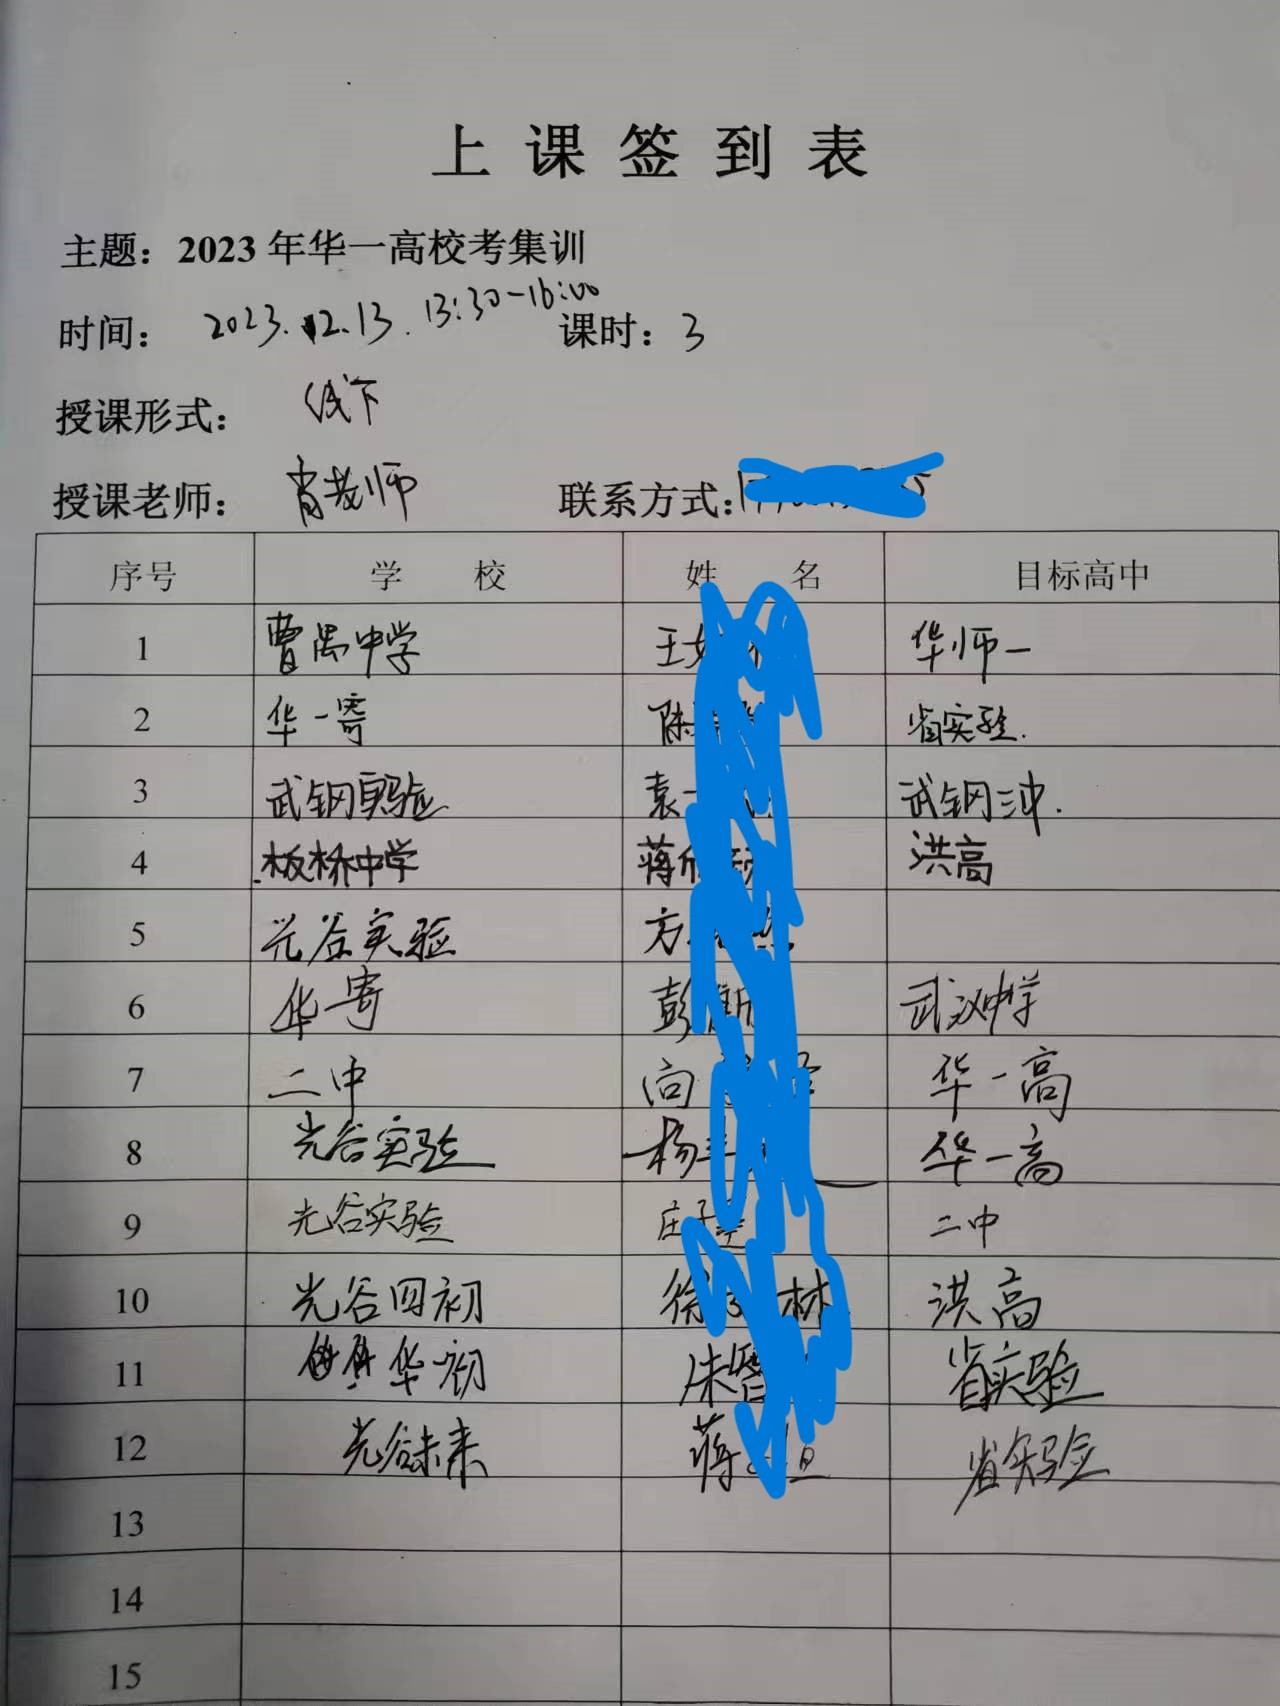 上课签到表
主题：2023年华一高校考集训
时间： 2023.12.13. 13:30-16:00 课时：3
授课形式： 线下
授课老师： 肖老师 联系方式：
序号 学校 姓名 目标高中
1 曹禺中学 王 华师一
2 华一寄 陈 省实验.
3 武钢实验 袁 武钢三中.
4 板桥中学 蒋 洪高
5 光谷实验 方
6 华一寄 彭 武汉中学
7 二中 向 华一高
8 光谷实验 杨 华一高
9 光谷实验 庄子 二中
10 光谷四初 徐 林 洪高
11 华一初 朱 省实验
12 光谷未来 蒋 省实验
13
14
15